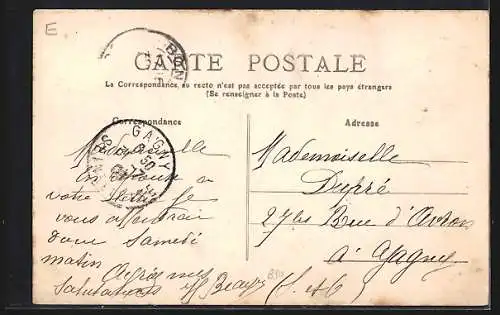 E
CARTE POSTALE
La Correspondance au recto n'est pas acceptée par tous les pays étrangers
(Se renseigner à la Poste)
Correspondance
Adresse
GAGNY
Mademoiselle
En réponse a
votre lettre je
vous attendrai
donc Samedi
matin
Salutations
Mademoiselle
Dupré
27 bis Rue d'Avron
à Gagny